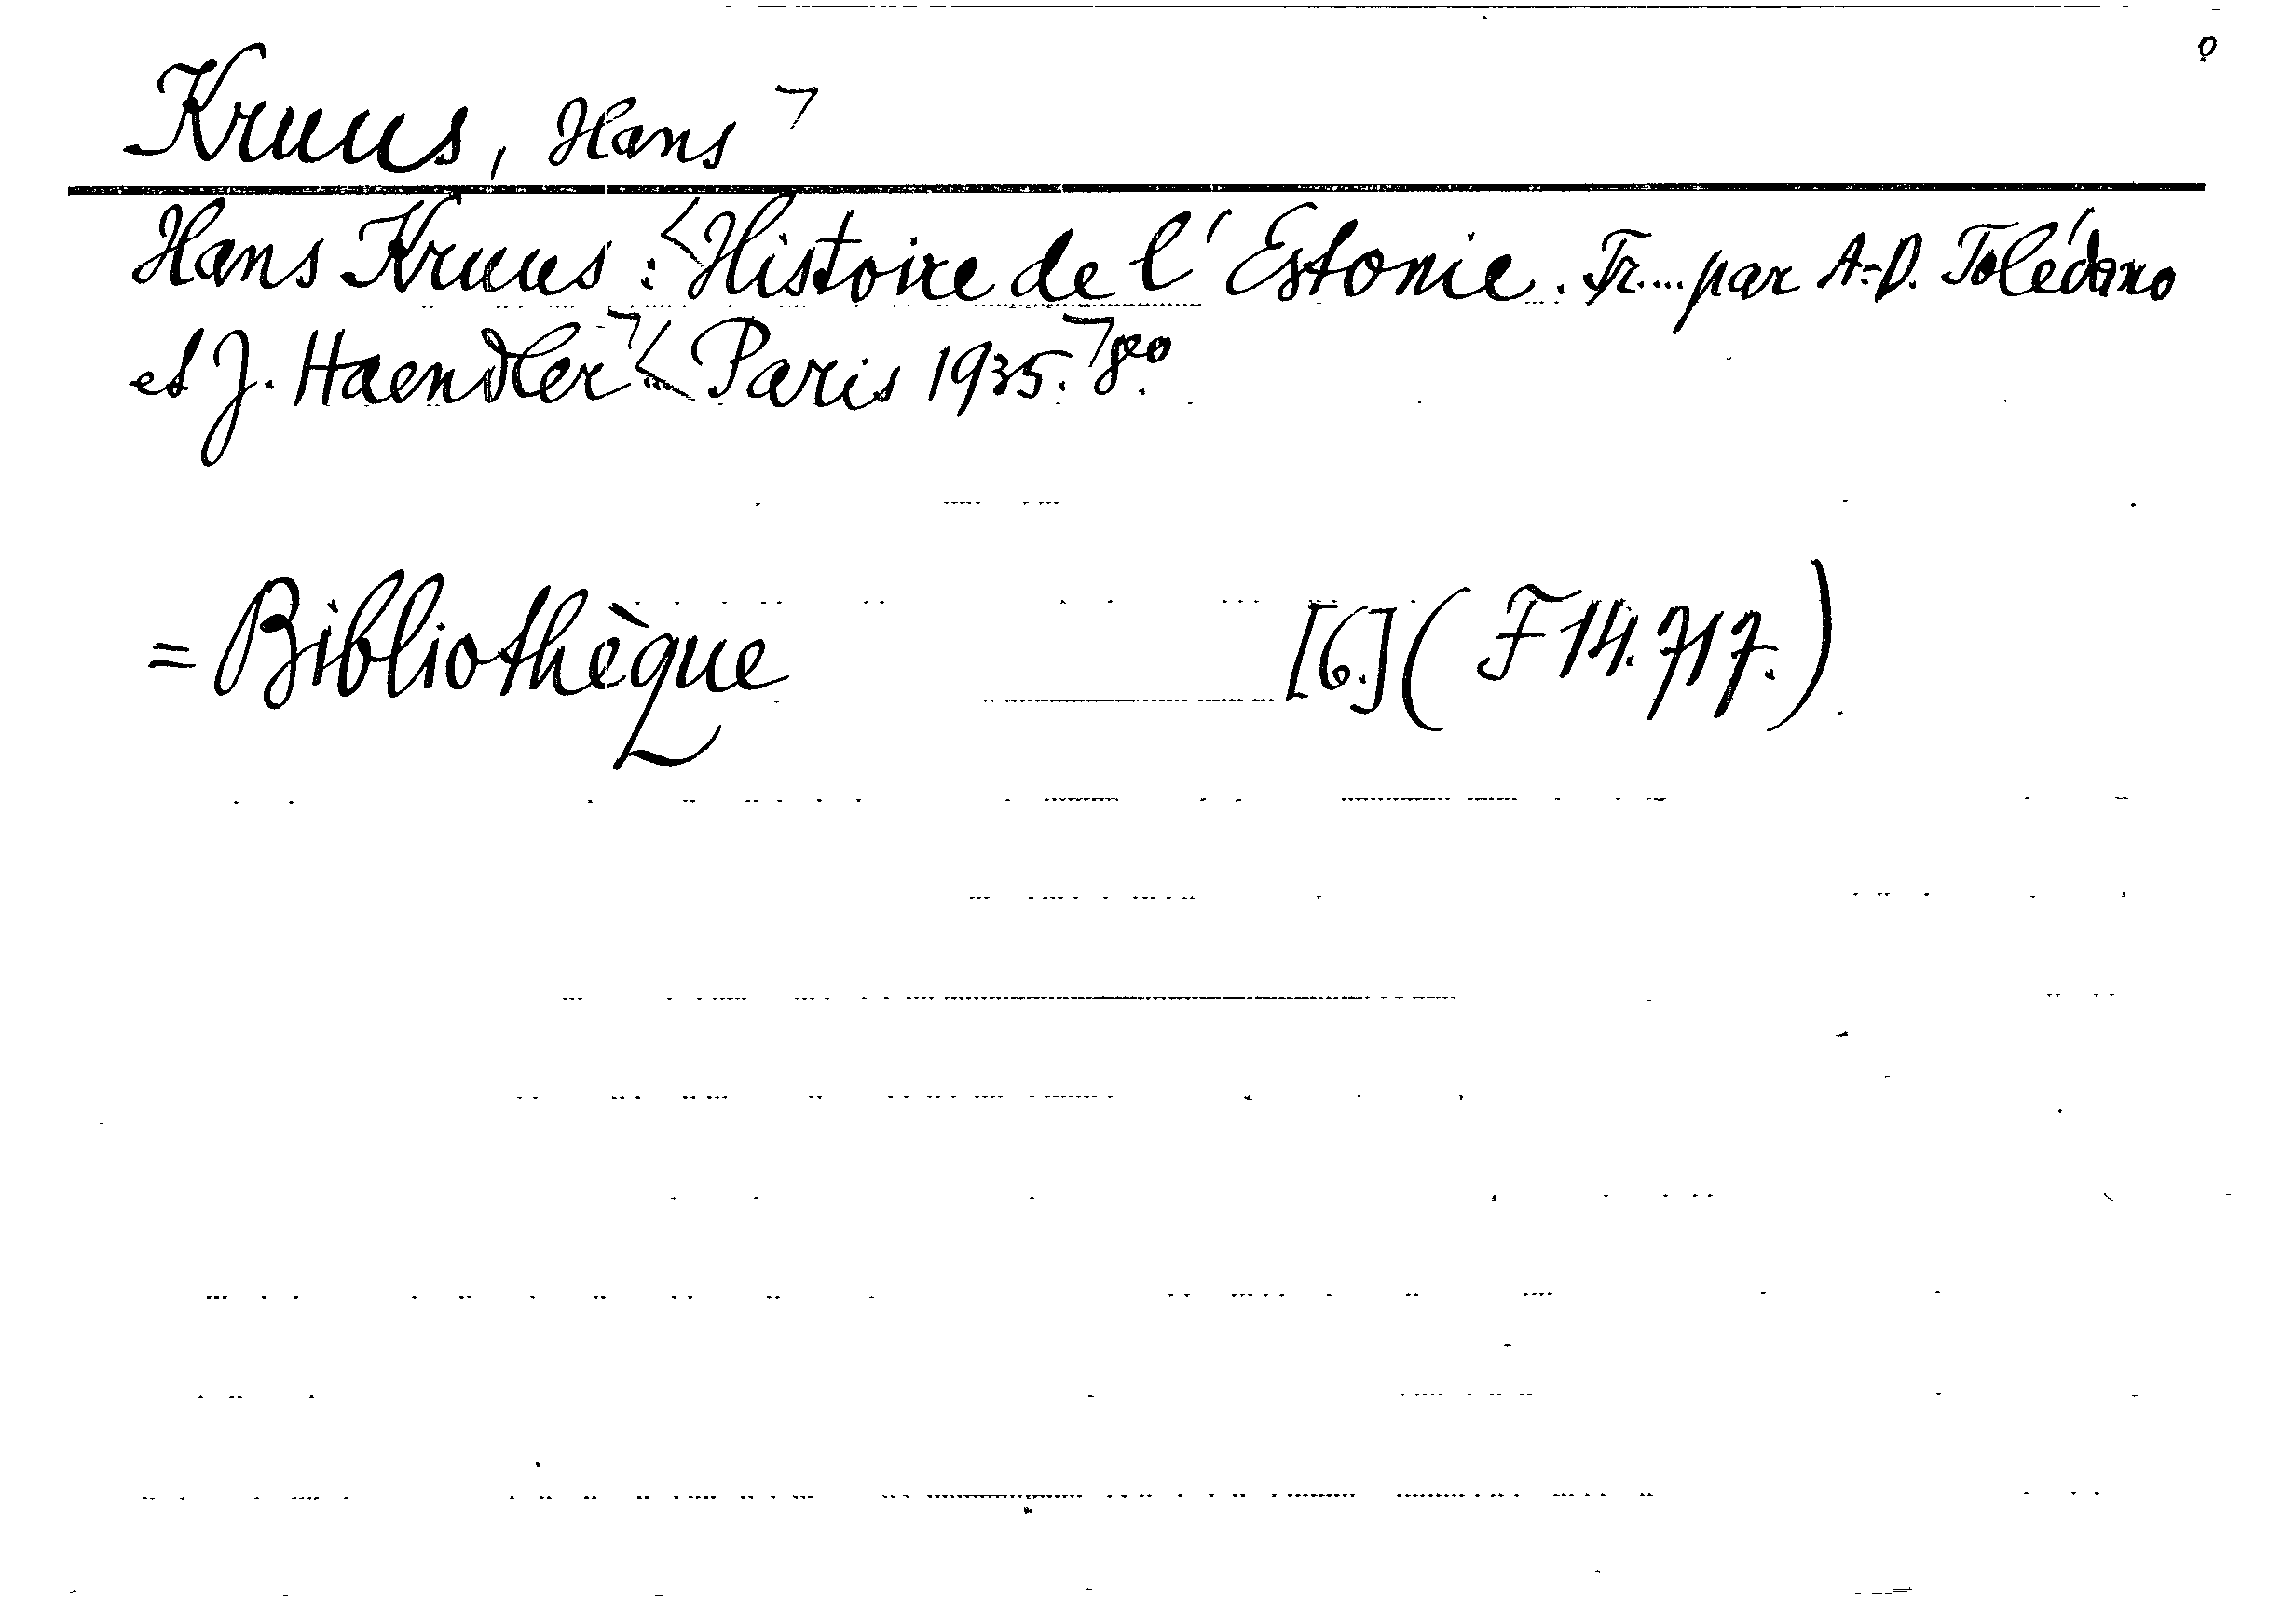 Kruus, Hans ㄱ
Hans Kruus : <Histoire de l'Estonie. Tr... par A.-D. Tolédano
et J. Haendler. < Paris 1935. 8°.
= Bibliothèque [6.] (F 14.717.)